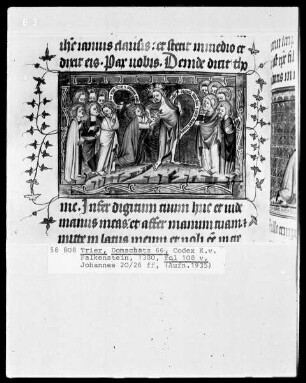 ihc ianuis clausis: et stetit in medio et
dixit eis. Pax vobis. Deinde dicit tho
me. Infer digitum tuum huc et vide
manus meas. et affer manum tuam
mitte in latus meum et noli esse
58 808 Trier, Domschatz 66, Codex K.v.
Falkenstein, 1380, Fol 108 v,
Johannes 20/26 ff, (Aufn.1935)